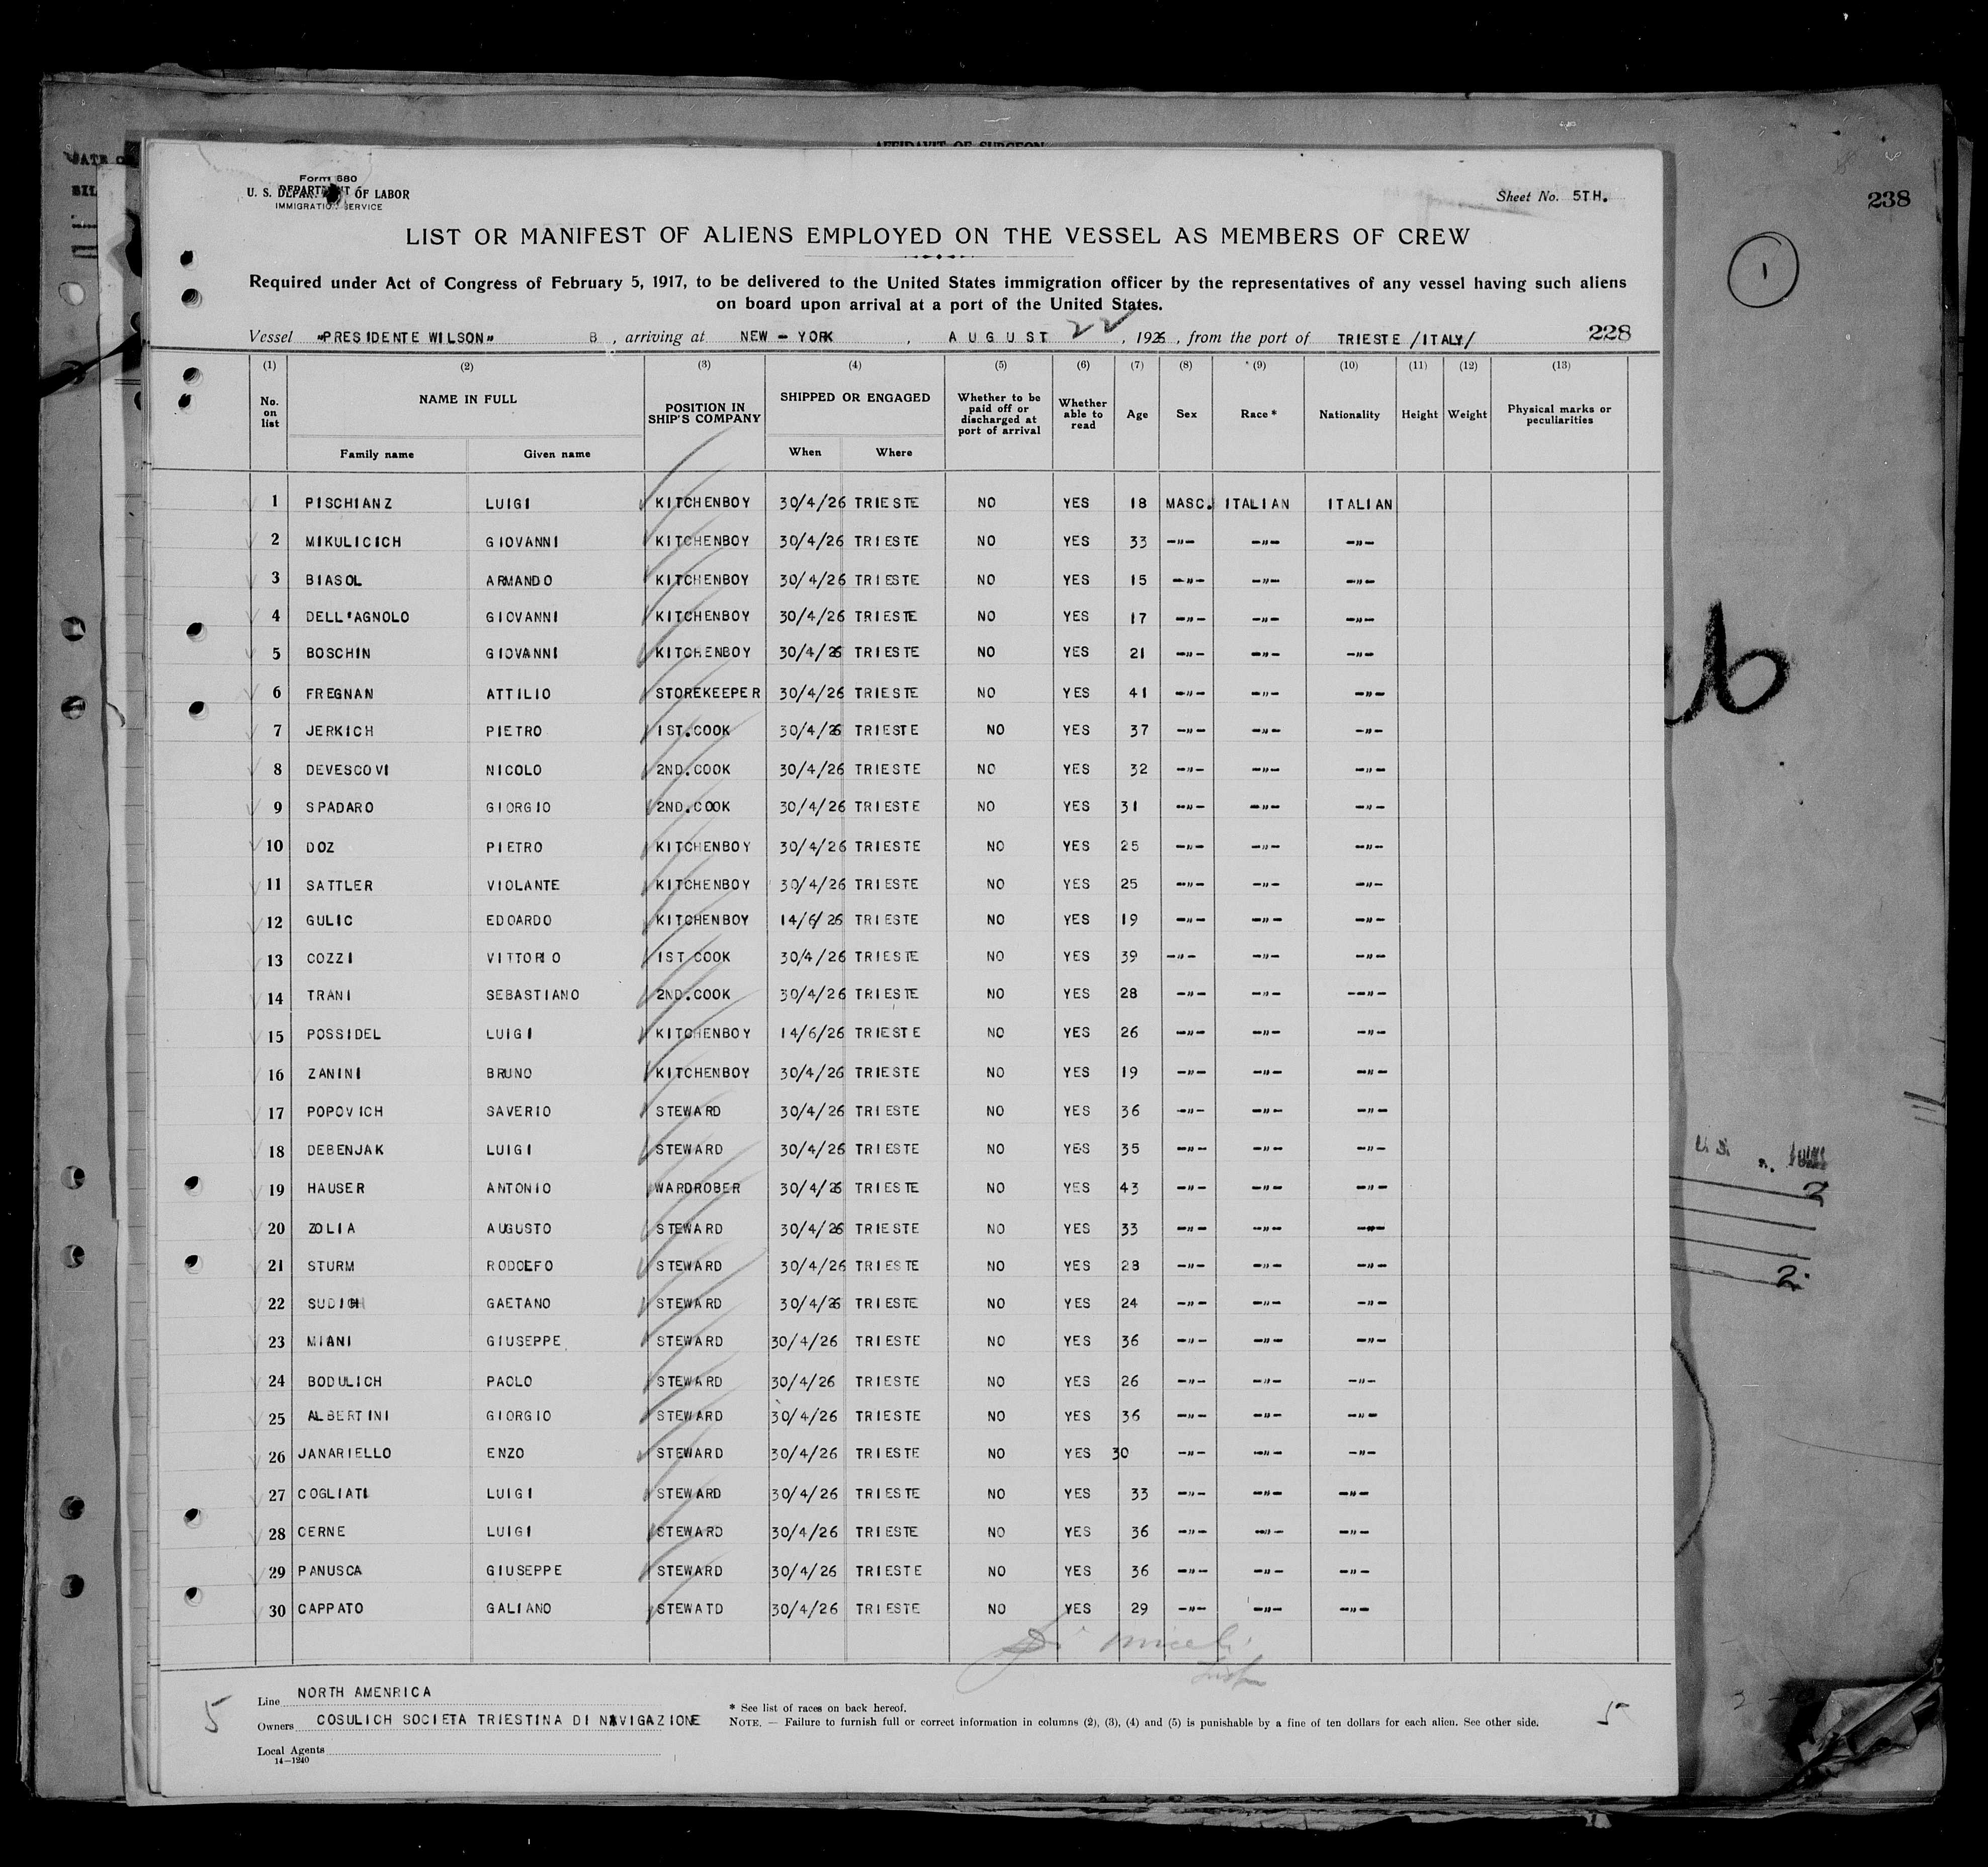 AFFIDAVIT OF SURGEON
238
1
Form 680
U. S. DEPARTMENT OF LABOR
IMMIGRATION SERVICE
Sheet No. 5TH.
LIST OR MANIFEST OF ALIENS EMPLOYED ON THE VESSEL AS MEMBERS OF CREW
Required under Act of Congress of February 5, 1917, to be delivered to the United States immigration officer by the representatives of any vessel having such aliens
on board upon arrival at a port of the United States.
Vessel "PRESIDENTE WILSON" B , arriving at NEW - YORK , AUGUST 22 , 1926 , from the port of TRIESTE /ITALY/ 228
(1) (2) (3) (4) (5) (6) (7) (8) (9) (10) (11) (12) (13)
No. on list NAME IN FULL Family name Given name POSITION IN SHIP'S COMPANY SHIPPED OR ENGAGED When Where Whether to be paid off or discharged at port of arrival Whether able to read Age Sex Race * Nationality Height Weight Physical marks or peculiarities
1 PISCHIANZ LUIGI KITCHENBOY 30/4/26 TRIESTE NO YES 18 MASC. ITALIAN ITALIAN
2 MIKULICICH GIOVANNI KITCHENBOY 30/4/26 TRIESTE NO YES 33 -"- -"- -"-
3 BIASOL ARMANDO KITCHENBOY 30/4/26 TRIESTE NO YES 15 -"- -"- -"-
4 DELL'AGNOLO GIOVANNI KITCHENBOY 30/4/26 TRIESTE NO YES 17 -"- -"- -"-
5 BOSCHIN GIOVANNI KITCHENBOY 30/4/26 TRIESTE NO YES 21 -"- -"- -"-
6 FREGNAN ATTILIO STOREKEEPER 30/4/26 TRIESTE NO YES 41 -"- -"- -"-
7 JERKICH PIETRO 1ST.COOK 30/4/26 TRIESTE NO YES 37 -"- -"- -"-
8 DEVESCOVI NICOLO 2ND.COOK 30/4/26 TRIESTE NO YES 32 -"- -"- -"-
9 SPADARO GIORGIO 2ND.COOK 30/4/26 TRIESTE NO YES 31 -"- -"- -"-
10 DOZ PIETRO KITCHENBOY 30/4/26 TRIESTE NO YES 25 -"- -"- -"-
11 SATTLER VIOLANTE KITCHENBOY 30/4/26 TRIESTE NO YES 25 -"- -"- -"-
12 GULIC EDOARDO KITCHENBOY 14/6/26 TRIESTE NO YES 19 -"- -"- -"-
13 COZZI VITTORIO 1ST COOK 30/4/26 TRIESTE NO YES 39 -"- -"- -"-
14 TRANI SEBASTIANO 2ND.COOK 30/4/26 TRIESTE NO YES 28 -"- -"- -"-
15 POSSIDEL LUIGI KITCHENBOY 14/6/26 TRIESTE NO YES 26 -"- -"- -"-
16 ZANINI BRUNO KITCHENBOY 30/4/26 TRIESTE NO YES 19 -"- -"- -"-
17 POPOVICH SAVERIO STEWARD 30/4/26 TRIESTE NO YES 36 -"- -"- -"-
18 DEBENJAK LUIGI STEWARD 30/4/26 TRIESTE NO YES 35 -"- -"- -"-
19 HAUSER ANTONIO WARDROBER 30/4/26 TRIESTE NO YES 43 -"- -"- -"-
20 ZOLIA AUGUSTO STEWARD 30/4/26 TRIESTE NO YES 33 -"- -"- -"-
21 STURM RODOLFO STEWARD 30/4/26 TRIESTE NO YES 28 -"- -"- -"-
22 SUDICH GAETANO STEWARD 30/4/26 TRIESTE NO YES 24 -"- -"- -"-
23 MIANI GIUSEPPE STEWARD 30/4/26 TRIESTE NO YES 36 -"- -"- -"-
24 BODULICH PAOLO STEWARD 30/4/26 TRIESTE NO YES 26 -"- -"- -"-
25 ALBERTINI GIORGIO STEWARD 30/4/26 TRIESTE NO YES 36 -"- -"- -"-
26 JANARIELLO ENZO STEWARD 30/4/26 TRIESTE NO YES 30 -"- -"- -"-
27 COGLIATI LUIGI STEWARD 30/4/26 TRIESTE NO YES 33 -"- -"- -"-
28 CERNE LUIGI STEWARD 30/4/26 TRIESTE NO YES 36 -"- -"- -"-
29 PANUSCA GIUSEPPE STEWARD 30/4/26 TRIESTE NO YES 36 -"- -"- -"-
30 CAPPATO GALIANO STEWATD 30/4/26 TRIESTE NO YES 29 -"- -"- -"-
5
Line NORTH AMENRICA
Owners COSULICH SOCIETA TRIESTINA DI NAVIGAZIONE
Local Agents
14—1240
* See list of races on back hereof.
NOTE. — Failure to furnish full or correct information in columns (2), (3), (4) and (5) is punishable by a fine of ten dollars for each alien. See other side.
5
2
2